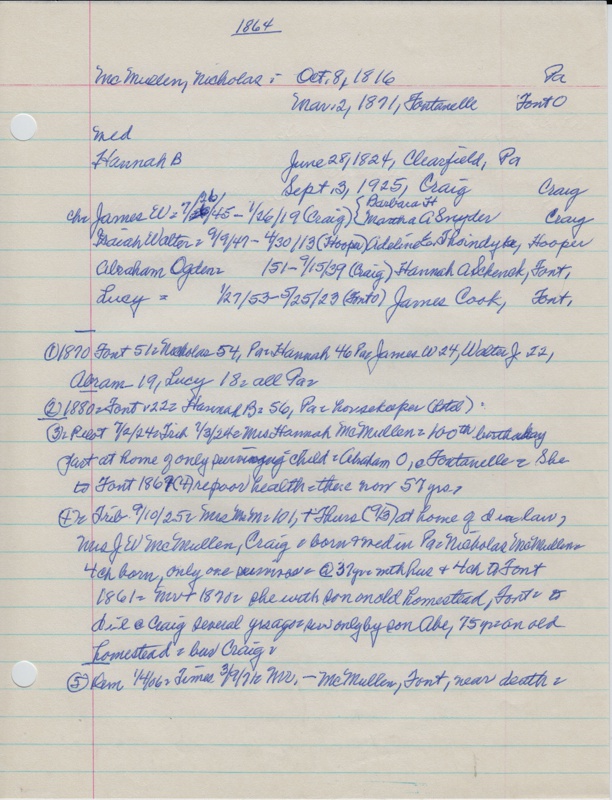 1864
McMullen, Nicholas = Oct. 8, 1816 Pa
Mar. 2, 1871, Fontanelle Font O
med
Hannah B June 28, 1824, Clearfield, Pa
Sept. 3, 1925, Craig Craig
ch= James W = 7/26/45 - 1/26/19 (Craig) { Barbara H
Martha A Snyder Craig
Isaiah Walter = 9/9/47 - 4/30/13 (Hooper) Adeline Hooper
Abraham Ogden = /51 - 9/15/39 (Craig) Hannah A Schenck, Font.
Lucy = 1/27/53 - 5/25/23 (Font O) James Cook, Font.
① 1870 Font 51 = Nicholas 54, Pa = Hannah 46 Pa = James W 24, Walter J 22,
Abram 19, Lucy 18 = all Pa =
② 1880 = Font v 22 = Hannah B = 56, Pa = housekeeper (wd) =
③ = Pilot 7/2/24 = Trib 1/3/24 = Mrs Hannah McMullen = 100th birthday
just at home of only surviving child = Abraham O, @ Fontanelle = She
to Font 1867 (?) = poor health = there now 57 yrs.
④ = Trib 9/10/25 = Mrs McM = 101, + Thurs (9/3) at home of d in law,
Mrs J.W. McMullen, Craig = born & med in Pa = Nicholas McMullen =
4 ch born, only one survives = @ 37 yr = with hus & 4 ch to Font
1861 = Mr + 1870 = she with son on old homestead, Font = to
d i l @ Craig several yrs ago = surv only by son Abe, 75 yr = on old
homestead = bur Craig =
⑤ Rem 1/4/06 = Times 3/9/71 = Mr. — McMullen, Font, near death =